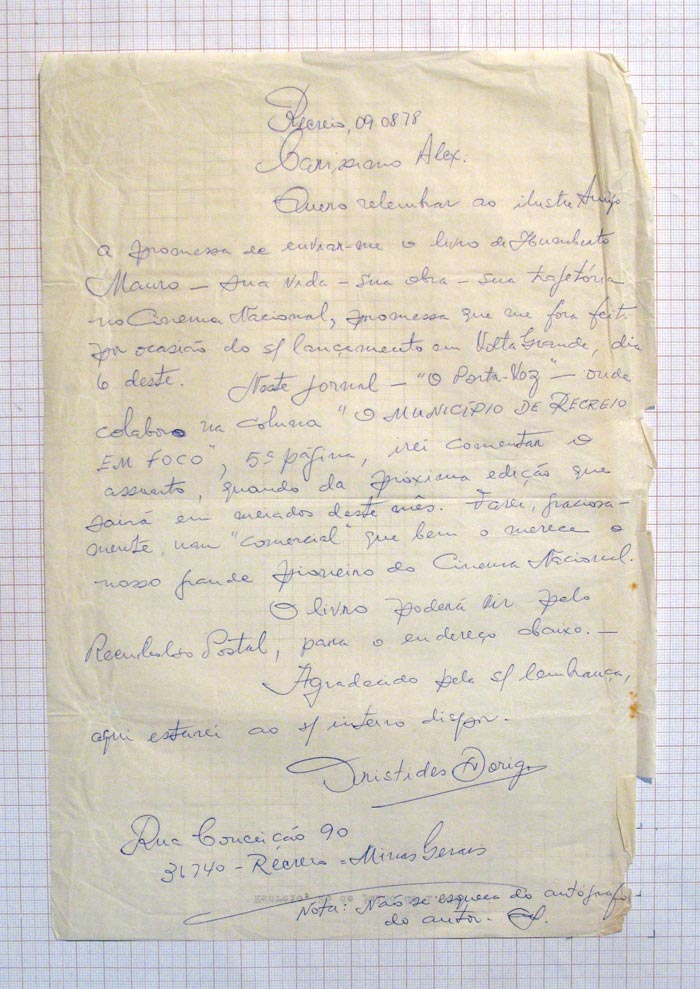 Recreio, 09.0878
Caríssimo Alex:
Quero relembrar ao ilustre Amigo
a promessa de enviar-me o livro de Humberto
Mauro — sua vida — sua obra — sua trajetória
no Cinema Nacional, promessa que me fora feita
por ocasião do s/ lançamento em Volta Grande, dia
6 deste. Neste jornal — "O Porta-Voz" — onde
colaboro na coluna "O MUNICÍPIO DE RECREIO
EM FOCO", 5ª página, irei comentar o
assunto, quando da próxima edição que
sairá em meados deste mês. Farei, graciosa-
mente, um "comercial" que bem o merece o
nosso grande pioneiro do Cinema Nacional.
O livro poderá vir pelo
Reembolso Postal, para o endereço abaixo. —
Agradecido pela s/ lembrança,
aqui estarei ao s/ inteiro dispor.
Aristides Dorigo
Rua Conceição 90
36.740 - Recreio = Minas Gerais
Nota: Não se esqueça do autógrafo
do autor.